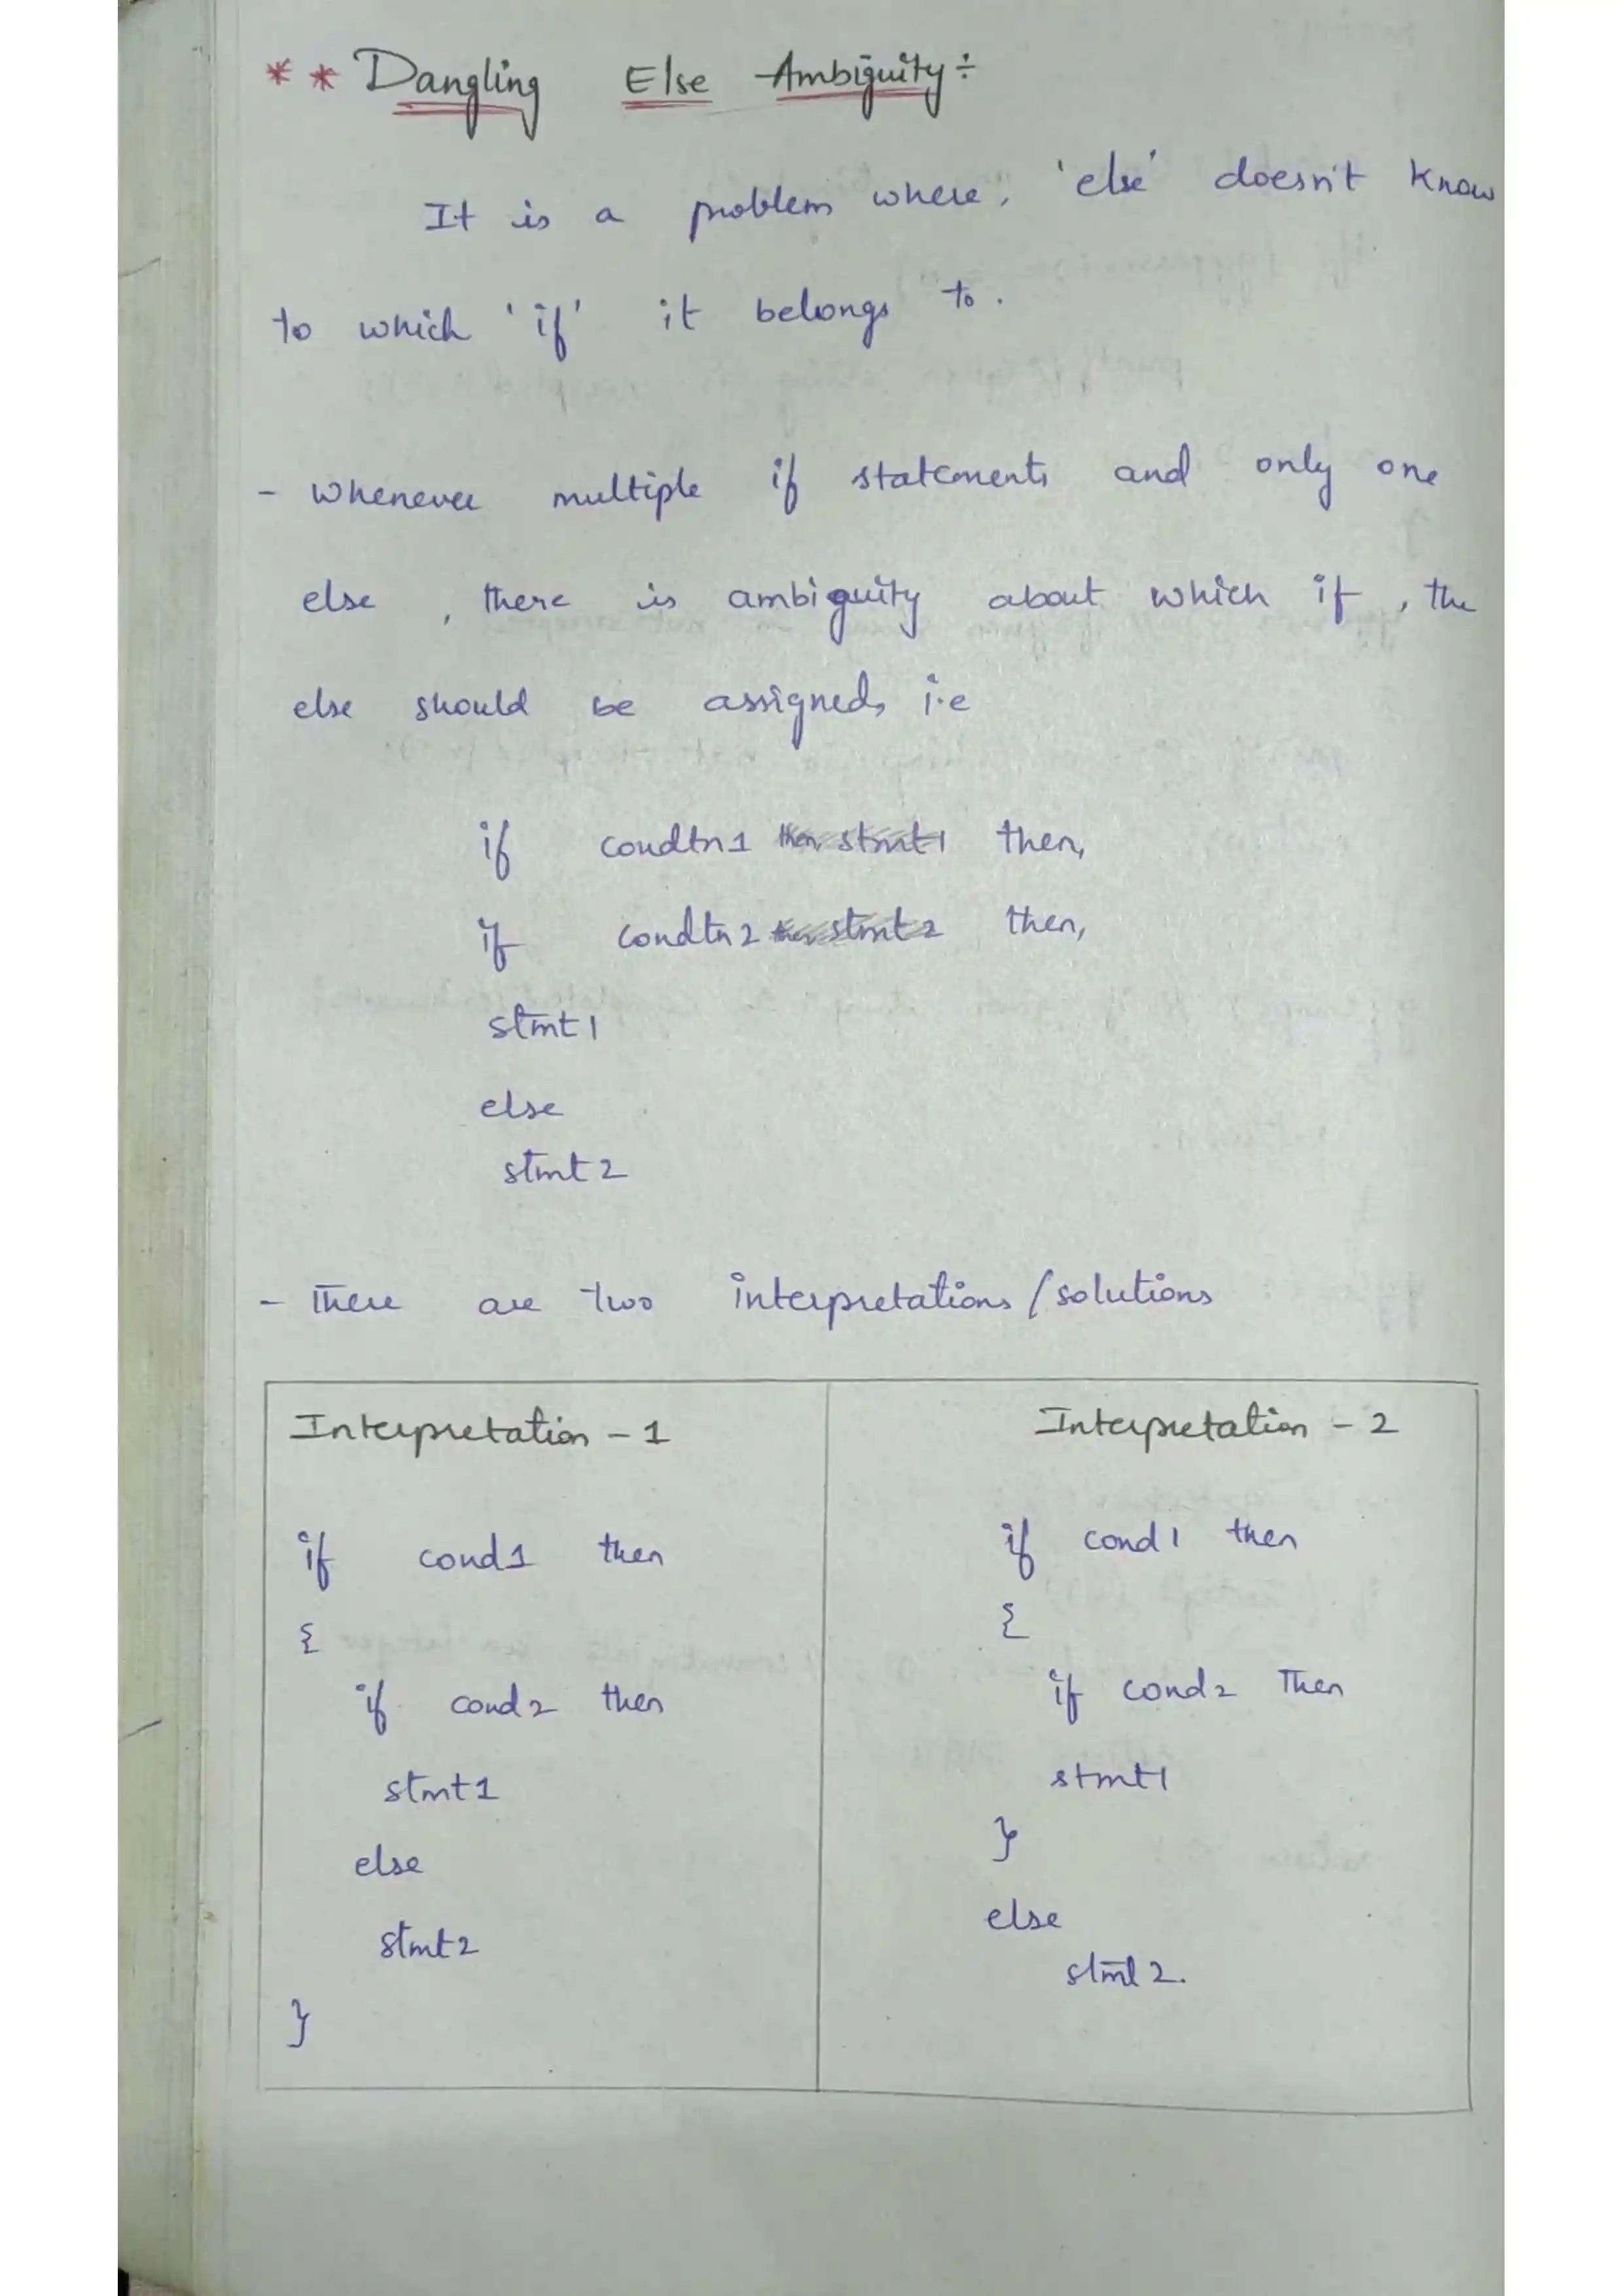 ** Dangling Else Ambiguity ÷
It is a problem where, 'else' doesn't know
to which 'if' it belongs to.
- Whenever multiple if statements and only one
else, there is ambiguity about which if, the
else should be assigned, i.e
if condtn1 then stmt1 then,
if condtn2 then stmt2 then,
stmt1
else
stmt2
- There are two interpretations/solutions
Interpretation - 1
if cond1 then
{
if cond2 then
stmt1
else
stmt2
}
Interpretation - 2
if cond1 then
{
if cond2 Then
stmt1
}
else
stmt2.